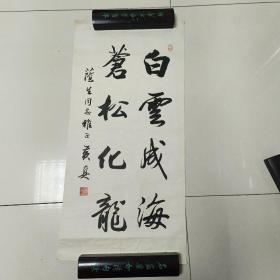 白雲成海
蒼松化龍
蔭生同志雅正 黄